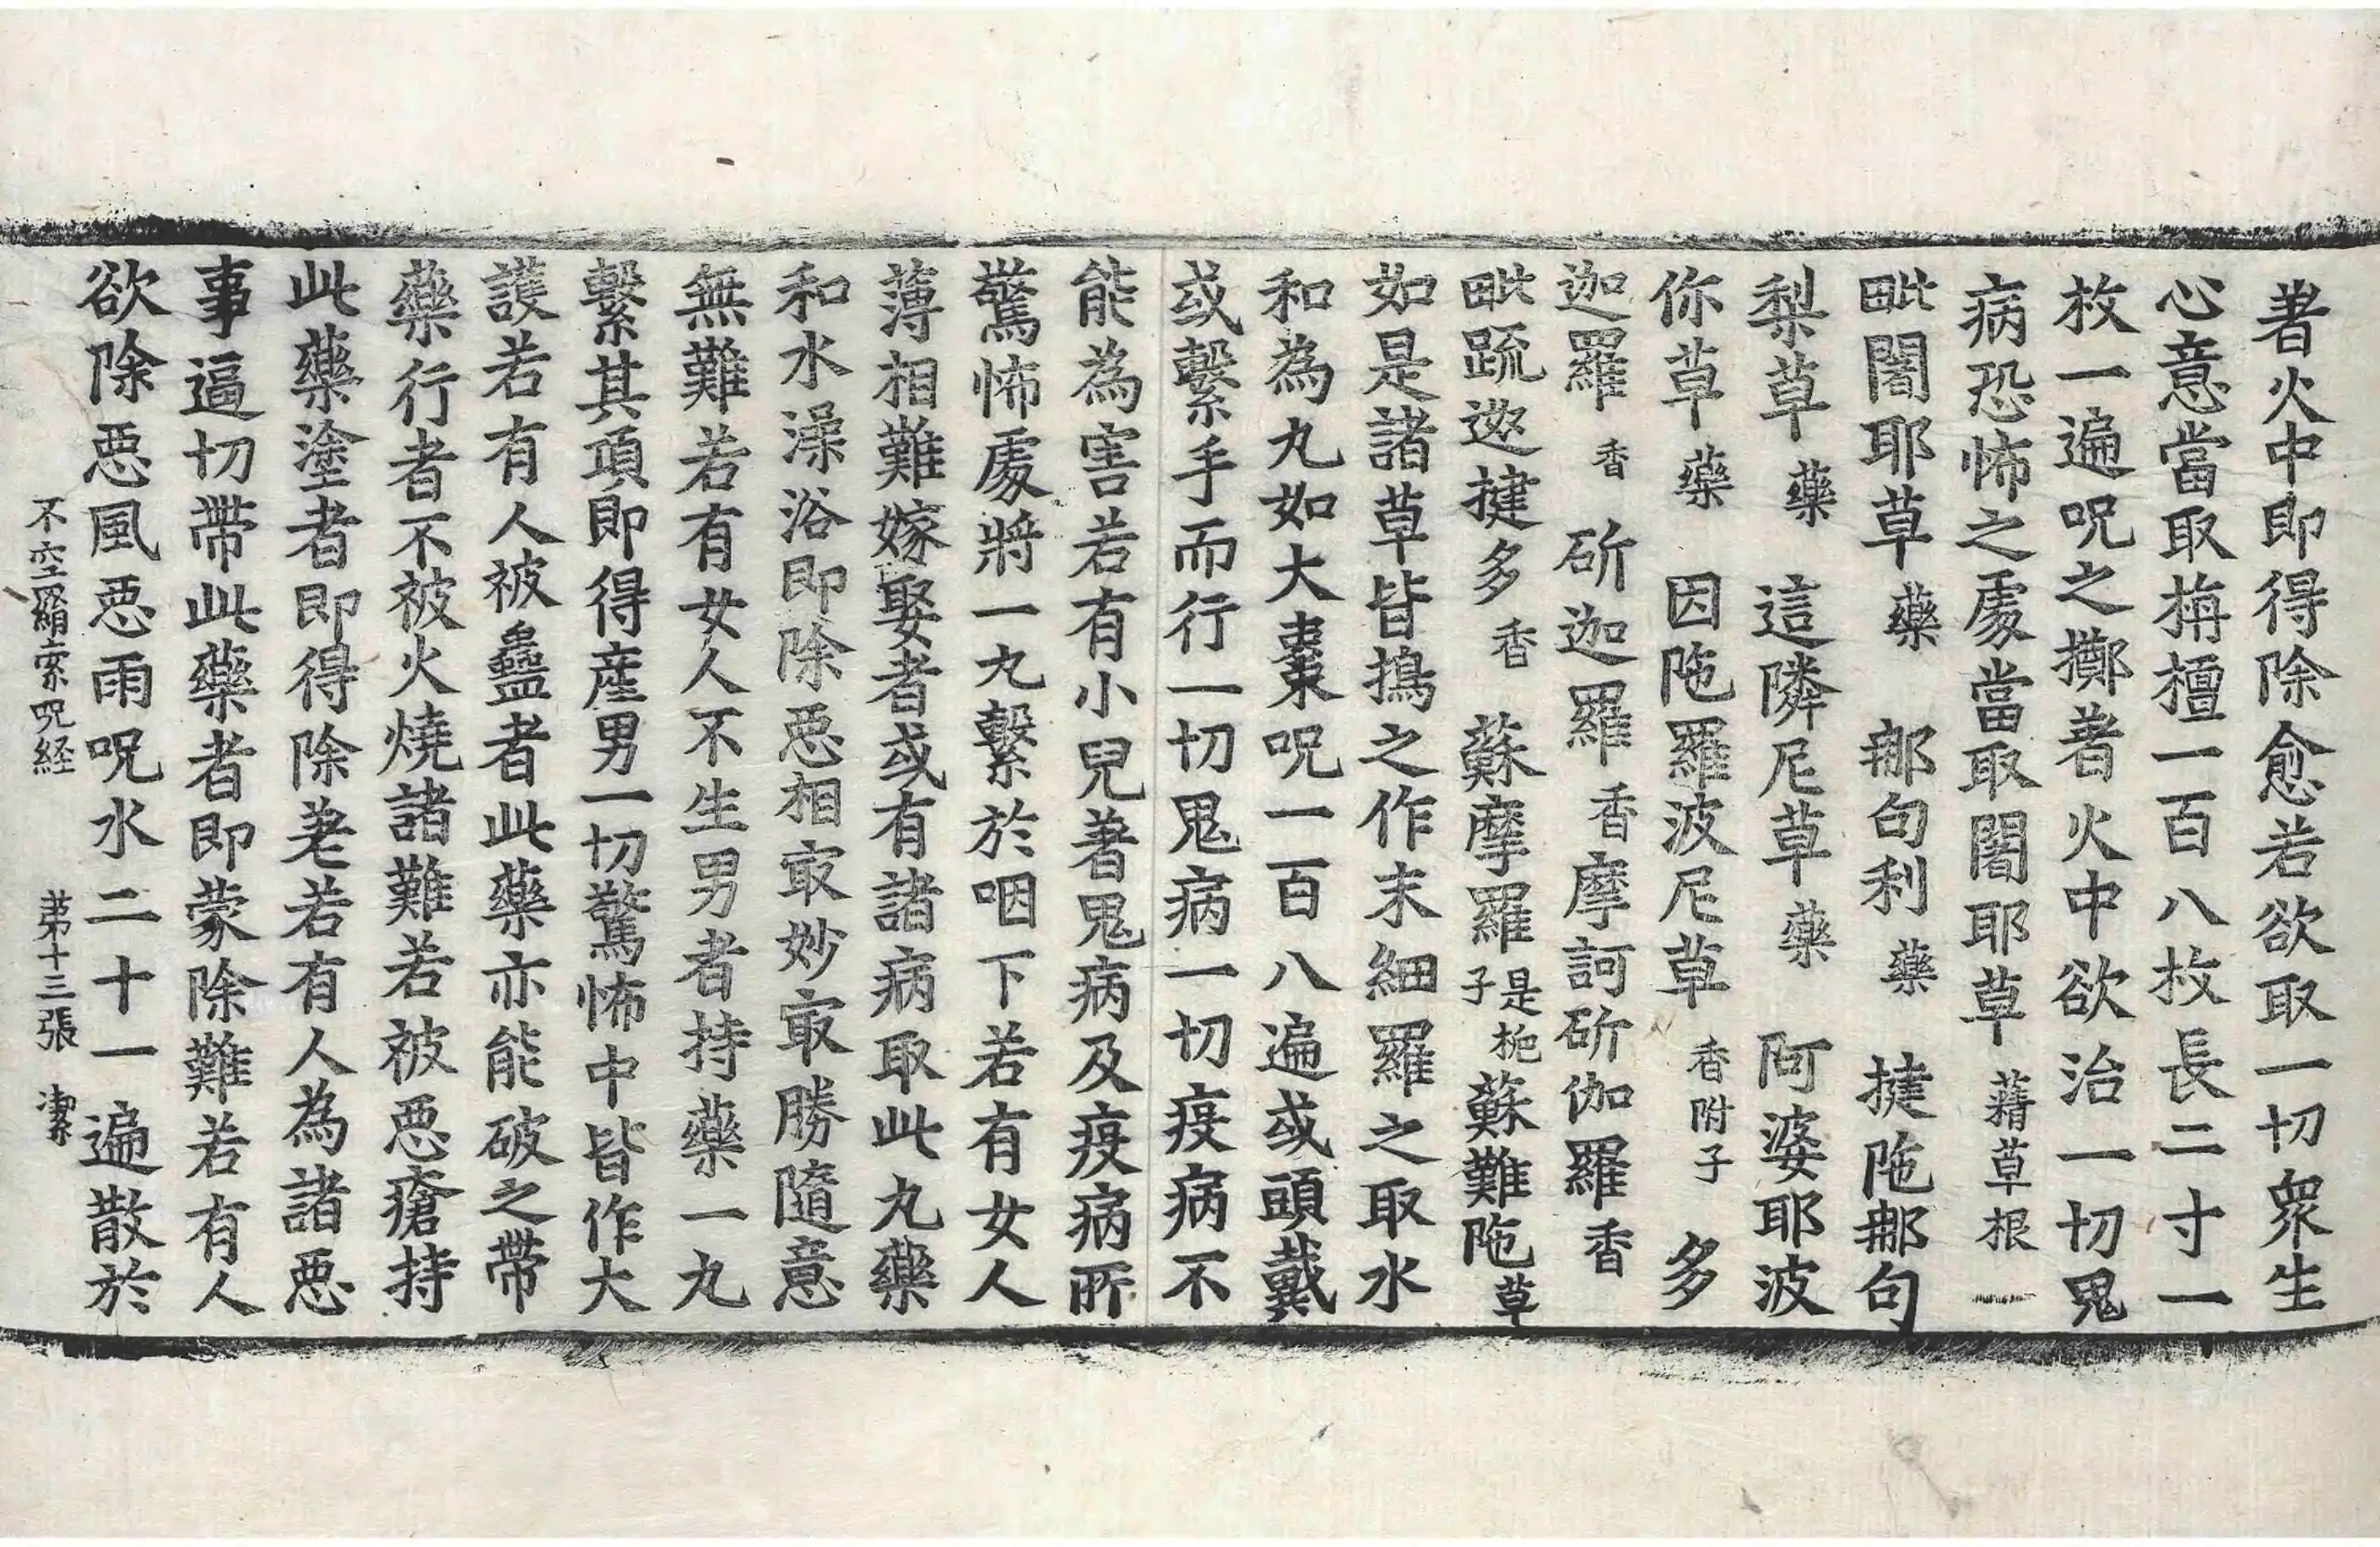 著火中即得除愈若欲取一切衆生
心意當取栴檀一百八枚長二寸一
枚一遍呪之擲著火中欲治一切鬼
病恐怖之處當取闍耶草 蒨草根一
毗闍耶草 藥 那句利 藥 揵陁那句
梨草 藥 這隣尼草 藥 阿婆耶波
你草 藥 因陁羅波尼草 香附子 多
迦羅 香 斫迦羅 香 摩訶斫伽羅 香
毗䟽迩揵多 香 蘇摩羅 是桅子 蘇難陁 草
如是諸草皆擣之作末細羅之取水
和為丸如大棗呪一百八遍或頭戴
或繫手而行一切鬼病一切疫病不
能為害若有小兒著鬼病及疫病所
驚怖處將一丸繫於咽下若有女人
薄相難嫁娶者或有諸病取此丸藥
和水澡浴即除惡相㝡妙㝡勝隨意
無難若有女人不生男者持藥一丸
繫其項即得産男一切驚怖中皆作大
護若有人被蠱者此藥亦能破之帶
藥行者不被火燒諸難若被惡瘡持
此藥塗者即得除差若有人為諸惡
事逼切帶此藥者即蒙除難若有人
欲除惡風惡雨呪水二十一遍散於
不空羂索呪経 苐十三張 潔